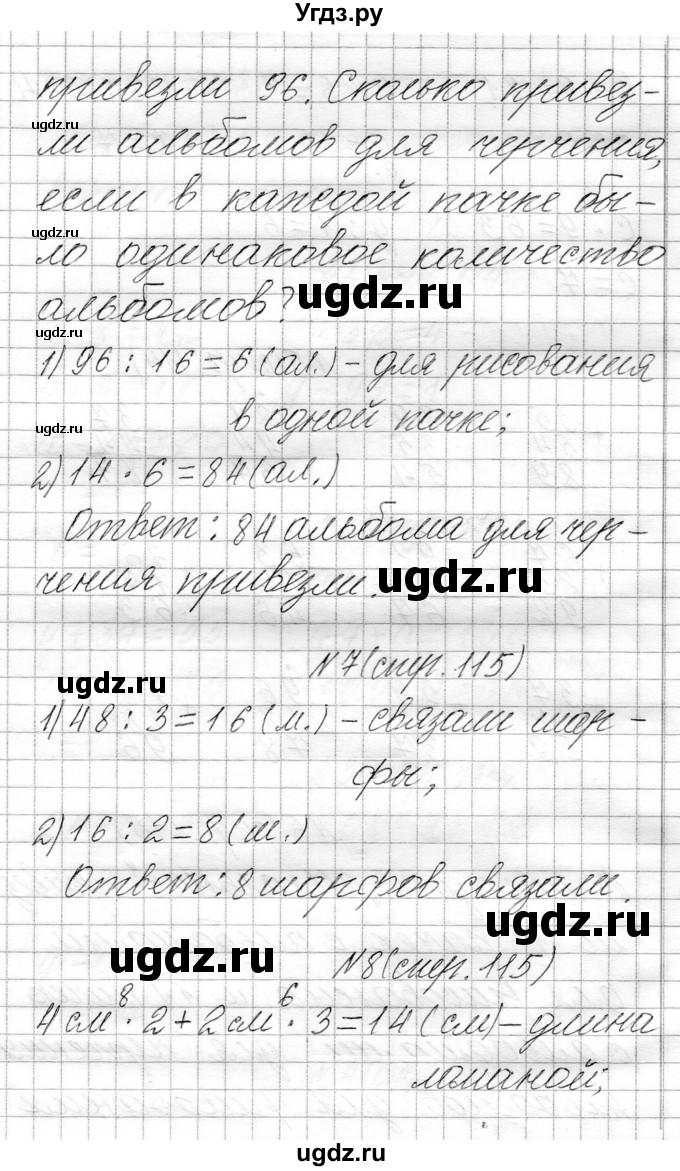 Угдз.ру
привезли 96. Сколько привез-
ugdz.ru
ли альбомов для черчения,
если в каждой пачке бы-
ugdz.ru
ло одинаковое количество
альбомов?
ugdz.ru
ugdz.ru
1) 96 : 16 = 6 (ал.) – для рисования
в одной пачке;
ugdz.ru
2) 14 · 6 = 84 (ал.)
Ответ: 84 альбома для чер-
чения привезли.
ugdz.ru
N7 (стр. 115)
ugdz.ru
1) 48 : 3 = 16 (м.) – связали шар-
фы;
2) 16 : 2 = 8 (ш.)
Ответ: 8 шарфов связали.
ugdz.ru
ugdz.ru
N8 (стр. 115)
8 6
4 см · 2 + 2 см · 3 = 14 (см) – длина
ломаной;
ugdz.ru